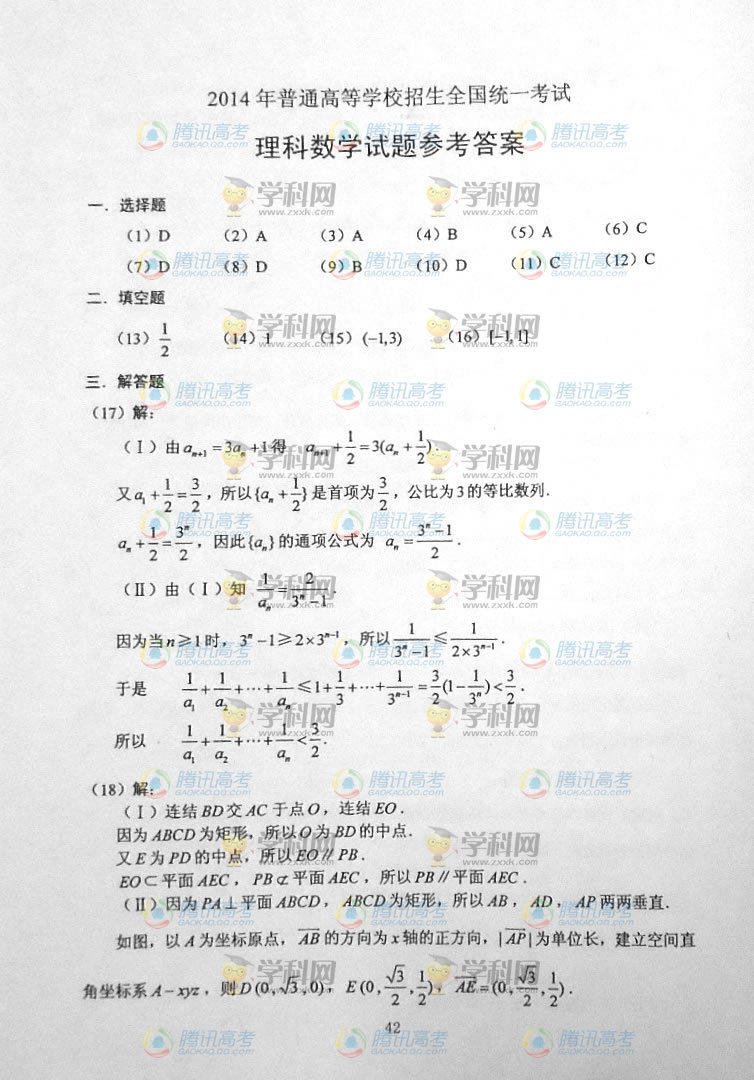 2014年普通高等学校招生全国统一考试
理科数学试题参考答案
一．选择题
（1）D （2）A （3）A （4）B （5）A （6）C
（7）D （8）D （9）B （10）D （11）C （12）C
二．填空题
（13）1/2 （14）1 （15）(−1,3) （16）[−1,1]
三．解答题
（17）解：
（Ⅰ）由 a_{n+1}=3a_n+1 得 a_{n+1}+1/2=3(a_n+1/2).
又 a_1+1/2=3/2，所以{a_n+1/2}是首项为3/2，公比为3的等比数列.
a_n+1/2=3^n/2，因此{a_n}的通项公式为 a_n=(3^n−1)/2.
（Ⅱ）由（Ⅰ）知 1/a_n=2/(3^n−1).
因为当n≥1时，3^n−1≥2×3^{n−1}，所以 1/(3^n−1)≤1/(2×3^{n−1}).
于是 1/a_1+1/a_2+⋯+1/a_n≤1+1/3+⋯+1/3^{n−1}=3/2(1−1/3^n)<3/2.
所以 1/a_1+1/a_2+⋯+1/a_n<3/2.
（18）解：
（Ⅰ）连结BD交AC于点O，连结EO.
因为ABCD为矩形，所以O为BD的中点.
又E为PD的中点，所以EO∥PB.
EO⊂平面AEC，PB⊄平面AEC，所以PB∥平面AEC.
（Ⅱ）因为PA⊥平面ABCD，ABCD为矩形，所以AB，AD，AP两两垂直.
如图，以A为坐标原点，AB的方向为x轴的正方向，|AP|为单位长，建立空间直
角坐标系A−xyz，则D(0,√3,0)，E(0,√3/2,1/2)，AE=(0,√3/2,1/2).
42